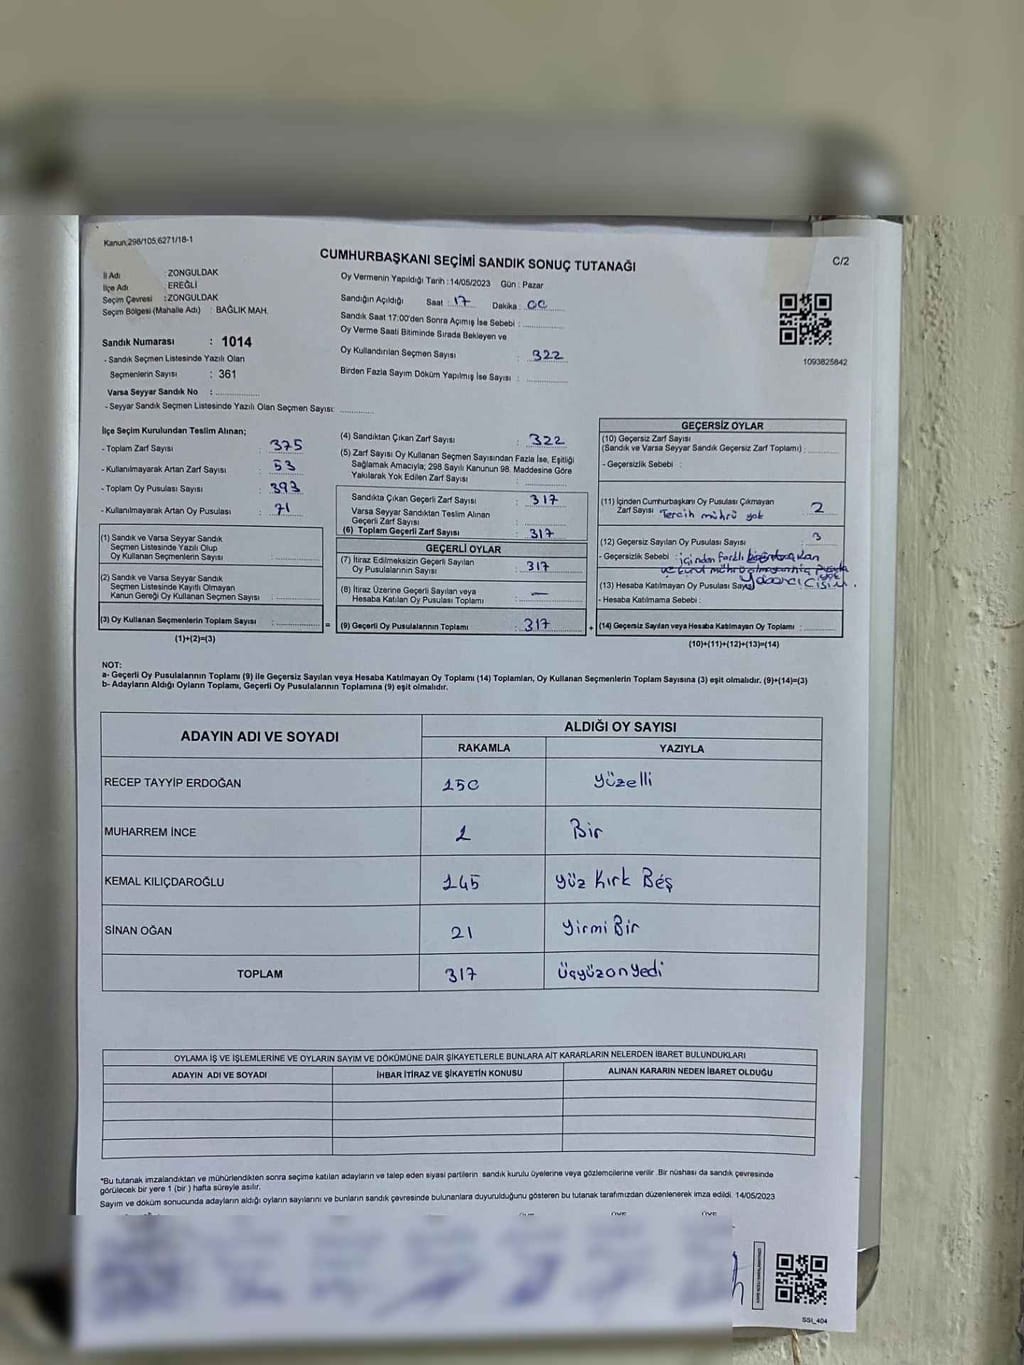 Kanun:298/105,6271/18-1
CUMHURBAŞKANI SEÇİMİ SANDIK SONUÇ TUTANAĞI
C/2
İl Adı : ZONGULDAK
İlçe Adı : EREĞLİ
Seçim Çevresi : ZONGULDAK
Seçim Bölgesi (Mahalle Adı) : BAĞLIK MAH.
Sandık Numarası : 1014
- Sandık Seçmen Listesinde Yazılı Olan
Seçmenlerin Sayısı : 361
Varsa Seyyar Sandık No :
- Seyyar Sandık Seçmen Listesinde Yazılı Olan Seçmen Sayısı:
Oy Vermenin Yapıldığı Tarih :14/05/2023 Gün : Pazar
Sandığın Açıldığı Saat 17 Dakika : 00
Sandık Saat 17:00'den Sonra Açımış İse Sebebi :
Oy Verme Saati Bitiminde Sırada Bekleyen ve
Oy Kullandırılan Seçmen Sayısı : 322
Birden Fazla Sayım Döküm Yapılmış İse Sayısı :
1093825842
İlçe Seçim Kurulundan Teslim Alınan;
- Toplam Zarf Sayısı : 375
- Kullanılmayarak Artan Zarf Sayısı : 53
- Toplam Oy Pusulası Sayısı : 393
- Kullanılmayarak Artan Oy Pusulası : 71
(1) Sandık ve Varsa Seyyar Sandık
Seçmen Listesinde Yazılı Olup
Oy Kullanan Seçmenlerin Sayısı :
(2) Sandık ve Varsa Seyyar Sandık
Seçmen Listesinde Kayıtlı Olmayan
Kanun Gereği Oy Kullanan Seçmen Sayısı :
(3) Oy Kullanan Seçmenlerin Toplam Sayısı :
(1)+(2)=(3)
(4) Sandıktan Çıkan Zarf Sayısı : 322
(5) Zarf Sayısı Oy Kullanan Seçmen Sayısından Fazla İse, Eşitliği
Sağlamak Amacıyla; 298 Sayılı Kanunun 98. Maddesine Göre
Yakılarak Yok Edilen Zarf Sayısı :
Sandıkta Çıkan Geçerli Zarf Sayısı : 317
Varsa Seyyar Sandıktan Teslim Alınan
Geçerli Zarf Sayısı :
(6) Toplam Geçerli Zarf Sayısı : 317
GEÇERLİ OYLAR
(7) İtiraz Edilmeksizin Geçerli Sayılan
Oy Pusulalarının Sayısı : 317
(8) İtiraz Üzerine Geçerli Sayılan veya
Hesaba Katılan Oy Pusulası Toplamı : —
= (9) Geçerli Oy Pusulalarının Toplamı : 317 +
GEÇERSİZ OYLAR
(10) Geçersiz Zarf Sayısı
(Sandık ve Varsa Seyyar Sandık Geçersiz Zarf Toplamı) :
- Geçersizlik Sebebi :
(11) İçinden Cumhurbaşkanı Oy Pusulası Çıkmayan
Zarf Sayısı Tercih mührü yok 2
(12) Geçersiz Sayılan Oy Pusulası Sayısı : 3
- Geçersizlik Sebebi : içinden farklı
(13) Hesaba Katılmayan Oy Pusulası Sayısı
- Hesaba Katılmama Sebebi :
(14) Geçersiz Sayılan veya Hesaba Katılmayan Oy Toplamı :
(10)+(11)+(12)+(13)=(14)
NOT:
a- Geçerli Oy Pusulasının Toplamı (9) ile Geçersiz Sayılan veya Hesaba Katılmayan Oy Toplamı (14) Toplamları, Oy Kullanan Seçmenlerin Toplam Sayısına (3) eşit olmalıdır. (9)+(14)=(3)
b- Adayların Aldığı Oyların Toplamı, Geçerli Oy Pusulalarının Toplamına (9) eşit olmalıdır.
ADAYIN ADI VE SOYADI ALDIĞI OY SAYISI
RAKAMLA YAZIYLA
RECEP TAYYİP ERDOĞAN 150 Yüzelli
MUHARREM İNCE 1 Bir
KEMAL KILIÇDAROĞLU 145 Yüz Kırk Beş
SİNAN OĞAN 21 Yirmi Bir
TOPLAM 317 Üçyüzonyedi
OYLAMA İŞ VE İŞLEMLERİNE VE OYLARIN SAYIM VE DÖKÜMÜNE DAİR ŞİKAYETLERLE BUNLARA AİT KARARLARIN NELERDEN İBARET BULUNDUKLARI
ADAYIN ADI VE SOYADI İHBAR İTİRAZ VE ŞİKAYETİN KONUSU ALINAN KARARIN NEDEN İBARET OLDUĞU
*Bu tutanak imzalandıktan ve mühürlendikten sonra seçime katılan adayların ve talep eden siyasi partilerin sandık kurulu üyelerine veya gözlemcilerine verilir. Bir nüshası da sandık çevresinde
görülecek bir yere 1 (bir ) hafta süreyle asılır.
Sayım ve döküm sonucunda adayların aldığı oyların sayılarını ve bunların sandık çevresinde bulunanlara duyurulduğunu gösteren bu tutanak tarafımızdan düzenlenerek imza edildi. 14/05/2023
SSL_404